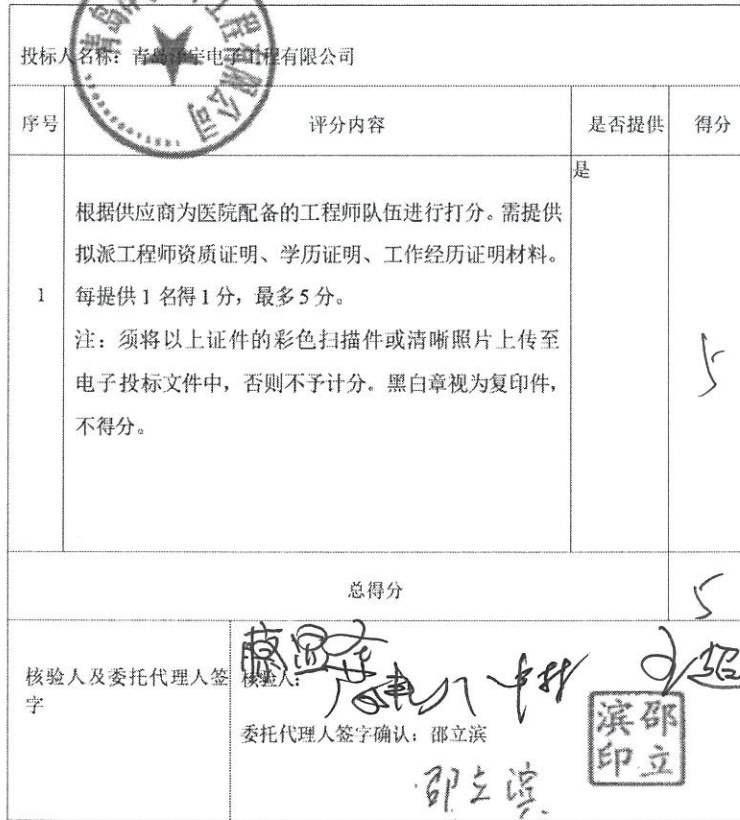 投标人名称：青岛泽宇电子工程有限公司
序号 评分内容 是否提供 得分
1
根据供应商为医院配备的工程师队伍进行打分。需提供
拟派工程师资质证明、学历证明、工作经历证明材料。
每提供1名得1分，最多5分。
注：须将以上证件的彩色扫描件或清晰照片上传至
电子投标文件中，否则不予计分。黑白章视为复印件，
不得分。
是
5
总得分 5
核验人及委托代理人签
字
核验人：
委托代理人签字确认：邵立滨
邵立滨
邵立
滨印